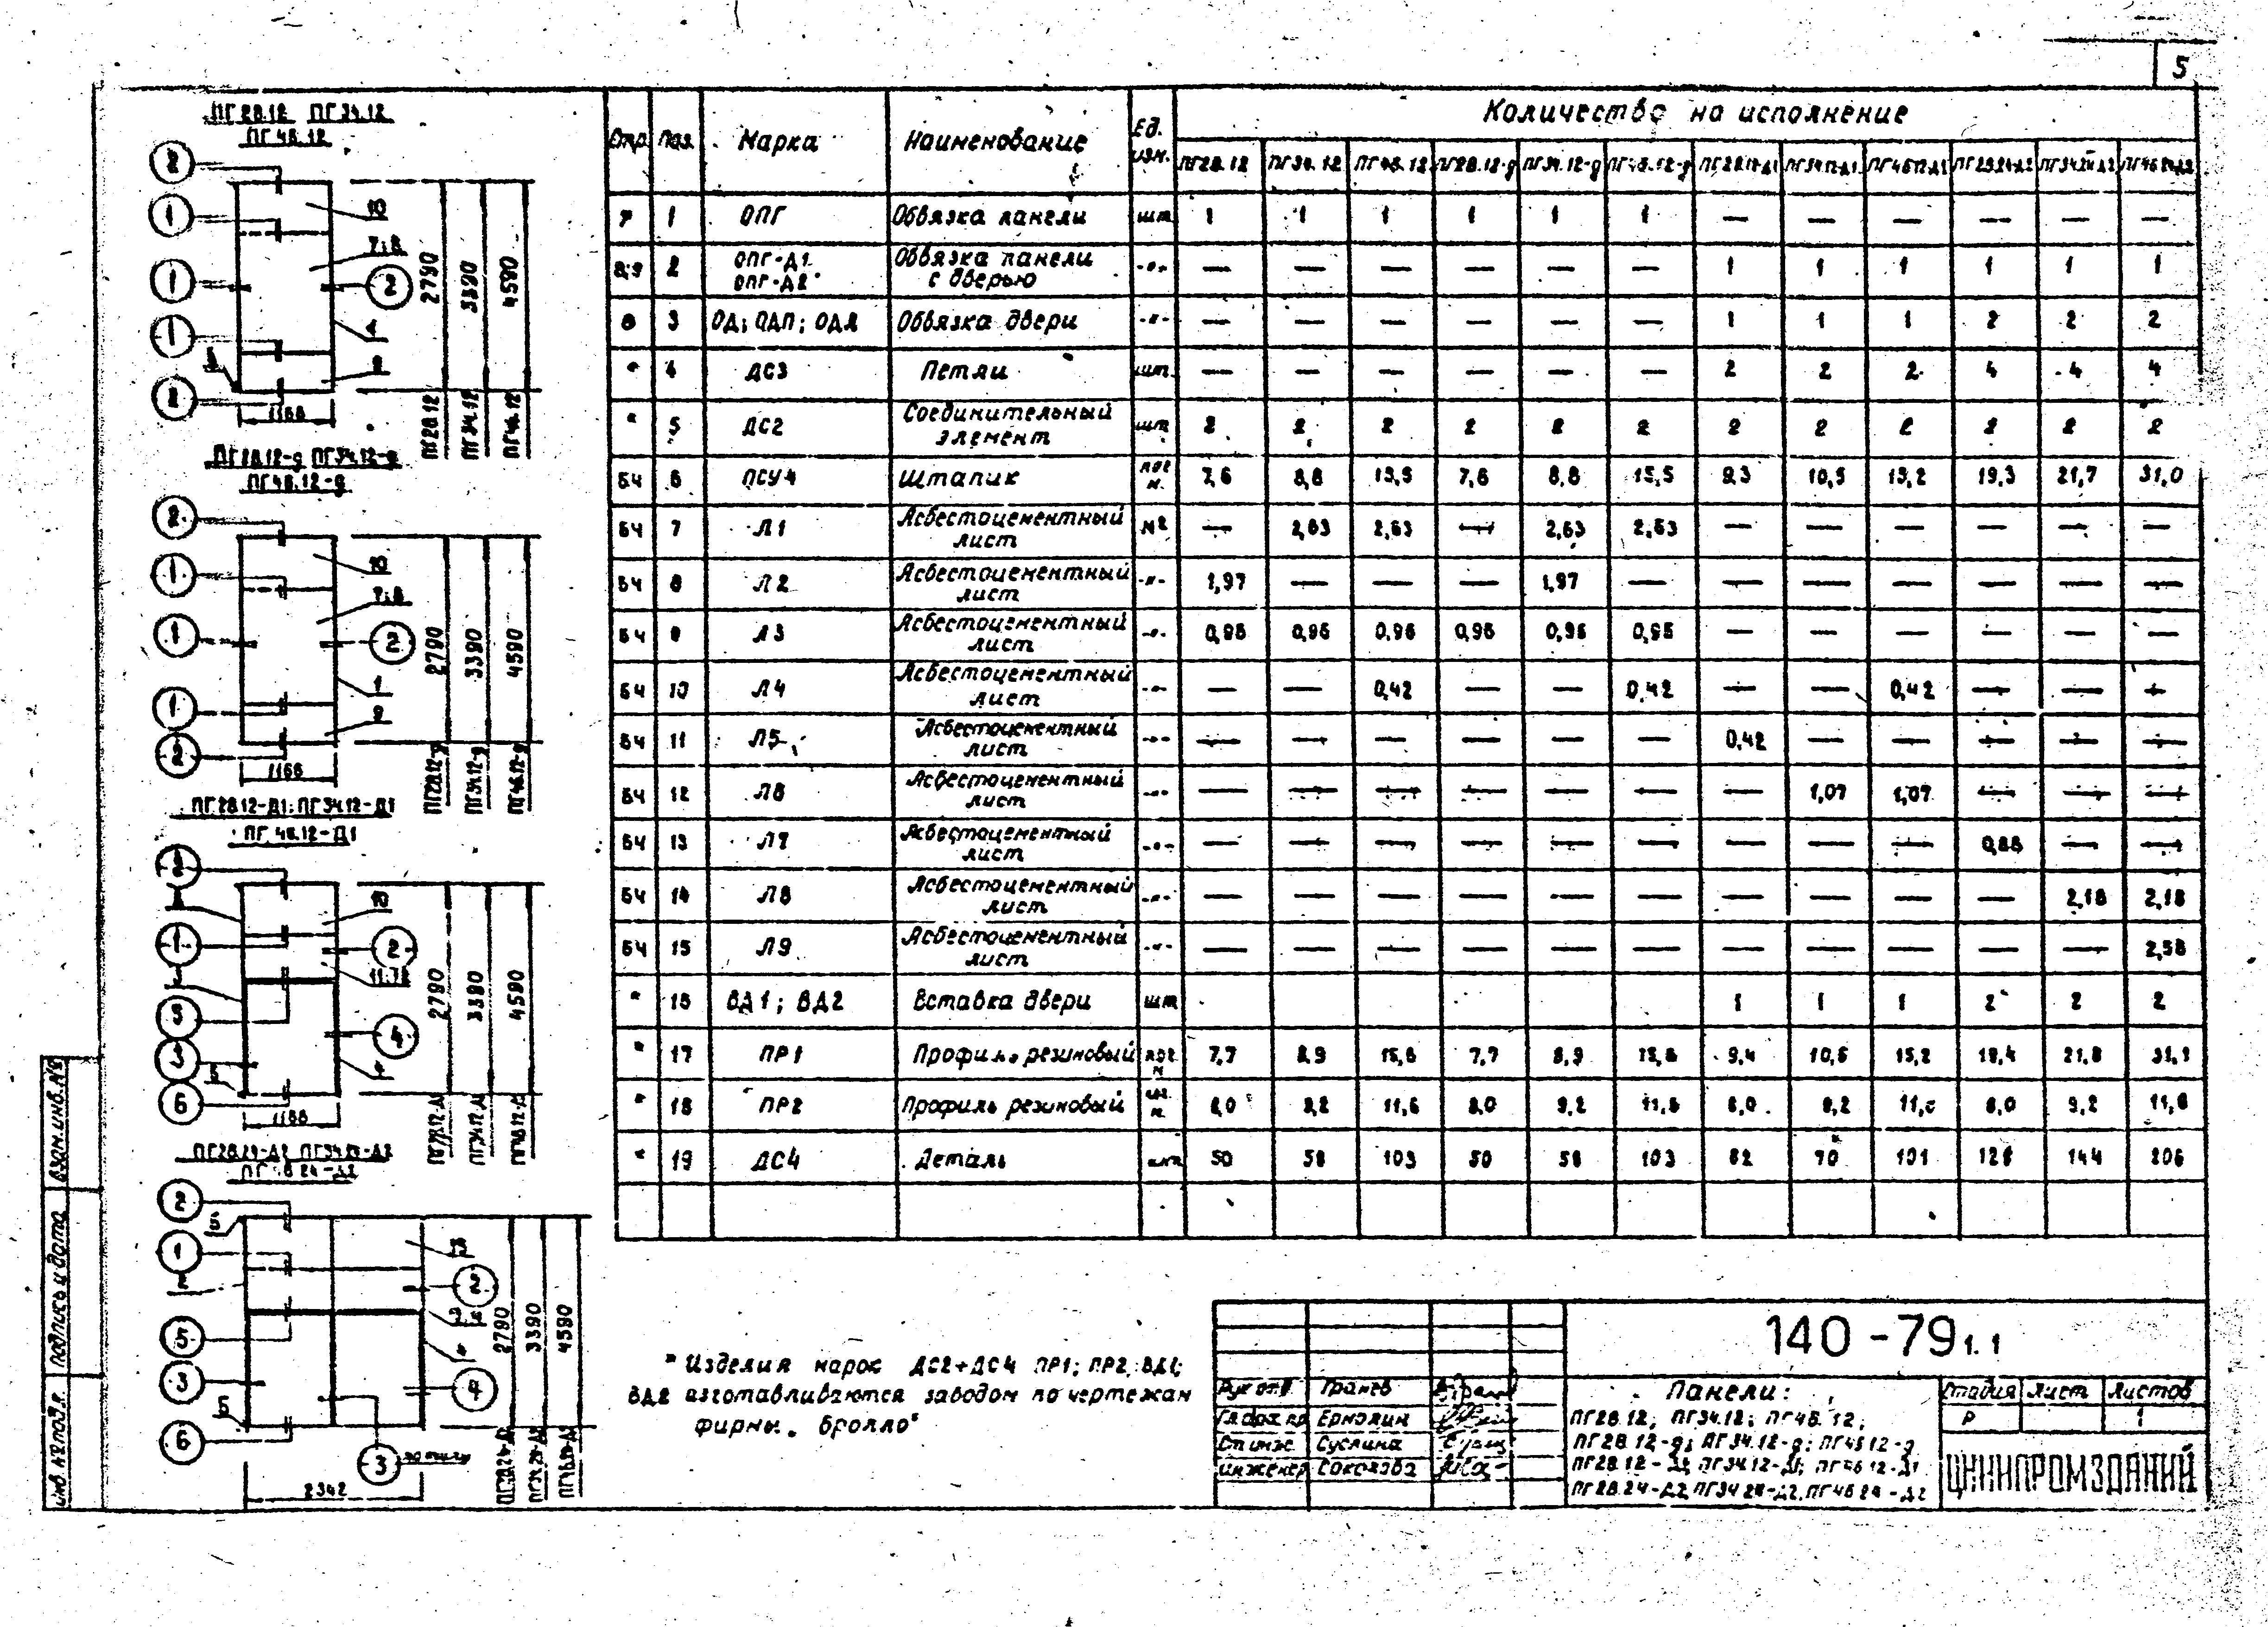 5
ПГ28.12 ПГ34.12
ПГ46.12
2
1
1
1
2
10
7;8
2
1
9
1168
2790
3390
4590
ПГ28.12
ПГ34.12
ПГ46.12
ПГ28.12-д ПГ34.12-д
ПГ46.12-д
2
1
1
1
2
10
7;8
2
1
9
1168
2790
3390
4590
ПГ28.12-д
ПГ34.12-д
ПГ46.12-д
ПГ28.12-Д1; ПГ34.12-Д1
ПГ.46.12-Д1
2
1
3
3
6
10
2
11;12
4
5
1168
2790
3390
4590
ПГ28.12-Д1
ПГ34.12-Д1
ПГ46.12-Д1
ПГ28.24-Д2 ПГ34.24-Д2
ПГ46.24-Д2
2
5
1
5
3
5
6
13
2
4
3
2342
2790
3390
4590
ПГ28.24-Д2
ПГ34.24-Д2
ПГ46.24-Д2
Стр. Поз. Марка Наименование Ед. изм. Количество на исполнение
ПГ28.12 ПГ34.12 ПГ46.12 ПГ28.12-д ПГ34.12-д ПГ46.12-д ПГ28.12-Д1 ПГ34.12-Д1 ПГ46.12-Д1 ПГ28.24-Д2 ПГ34.24-Д2 ПГ46.24-Д2
7 1 ОПГ Обвязка панели шт 1 1 1 1 1 1 — — — — — —
8;9 2 ОПГ-Д1 ОПГ-Д2 Обвязка панели с дверью -"- — — — — — — 1 1 1 1 1 1
3 ОД; ОДП; ОДЛ Обвязка двери -"- — — — — — — 1 1 1 2 2 2
* 4 ДС3 Петли шт. — — — — — — 2 2 2 4 4 4
* 5 ДС2 Соединительный элемент шт 2 2 2 2 2 2 2 2 2 2 2 2
БЧ 6 ПСУ4 Штапик пог м. 7,6 8,8 15,5 7,6 8,8 15,5 9,3 10,5 15,2 19,3 21,7 31,0
БЧ 7 Л1 Асбестоцементный лист м2 — 2,63 2,63 — 2,63 2,63 — — — — — —
БЧ 8 Л2 Асбестоцементный лист -"- 1,97 — — — 1,97 — — — — — — —
БЧ 9 Л3 Асбестоцементный лист -"- 0,96 0,96 0,96 0,96 0,96 0,96 — — — — — —
БЧ 10 Л4 Асбестоцементный лист -"- — — 0,42 — — 0,42 — — 0,42 — — —
БЧ 11 Л5 Асбестоцементный лист -"- — — — — — — 0,42 — — — — —
БЧ 12 Л6 Асбестоцементный лист -"- — — — — — — — 1,07 1,07 — — —
БЧ 13 Л7 Асбестоцементный лист -"- — — — — — — — — — 0,88 — —
БЧ 14 Л8 Асбестоцементный лист -"- — — — — — — — — — — 2,18 2,18
БЧ 15 Л9 Асбестоцементный лист -"- — — — — — — — — — — — 2,58
* 16 ВД1; ВД2 Вставка двери шт 1 1 1 2 2 2
* 17 ПР1 Профиль резиновый пог м 7,7 8,9 15,6 7,7 8,9 15,6 9,4 10,6 15,2 19,4 21,8 31,1
* 18 ПР2 Профиль резиновый пог. м. 8,0 9,2 11,6 8,0 9,2 11,6 8,0 9,2 11,6 8,0 9,2 11,6
* 19 ДС4 Деталь шт 50 58 103 50 58 103 62 70 101 128 144 206
* Изделия марок ДС2÷ДС4 ПР1; ПР2; ВД1;
ВД2 изготавливаются заводом по чертежам
фирмы „Бролло"
140-79 1.1
Рук отд Гранев
Гл арх пр Ермолин
Ст инж Суслина
Инженер Соколова
Панели:
ПГ28.12; ПГ34.12; ПГ46.12;
ПГ28.12-д; ПГ34.12-д; ПГ46.12-д
ПГ28.12-Д1; ПГ34.12-Д1; ПГ46.12-Д1
ПГ28.24-Д2 ПГ34.24-Д2, ПГ46.24-Д2
Стадия Лист Листов
Р 1
ЦНИИПРОМЗДАНИЙ
Взам.инв.№
Подпись и дата
Инв. № подл.